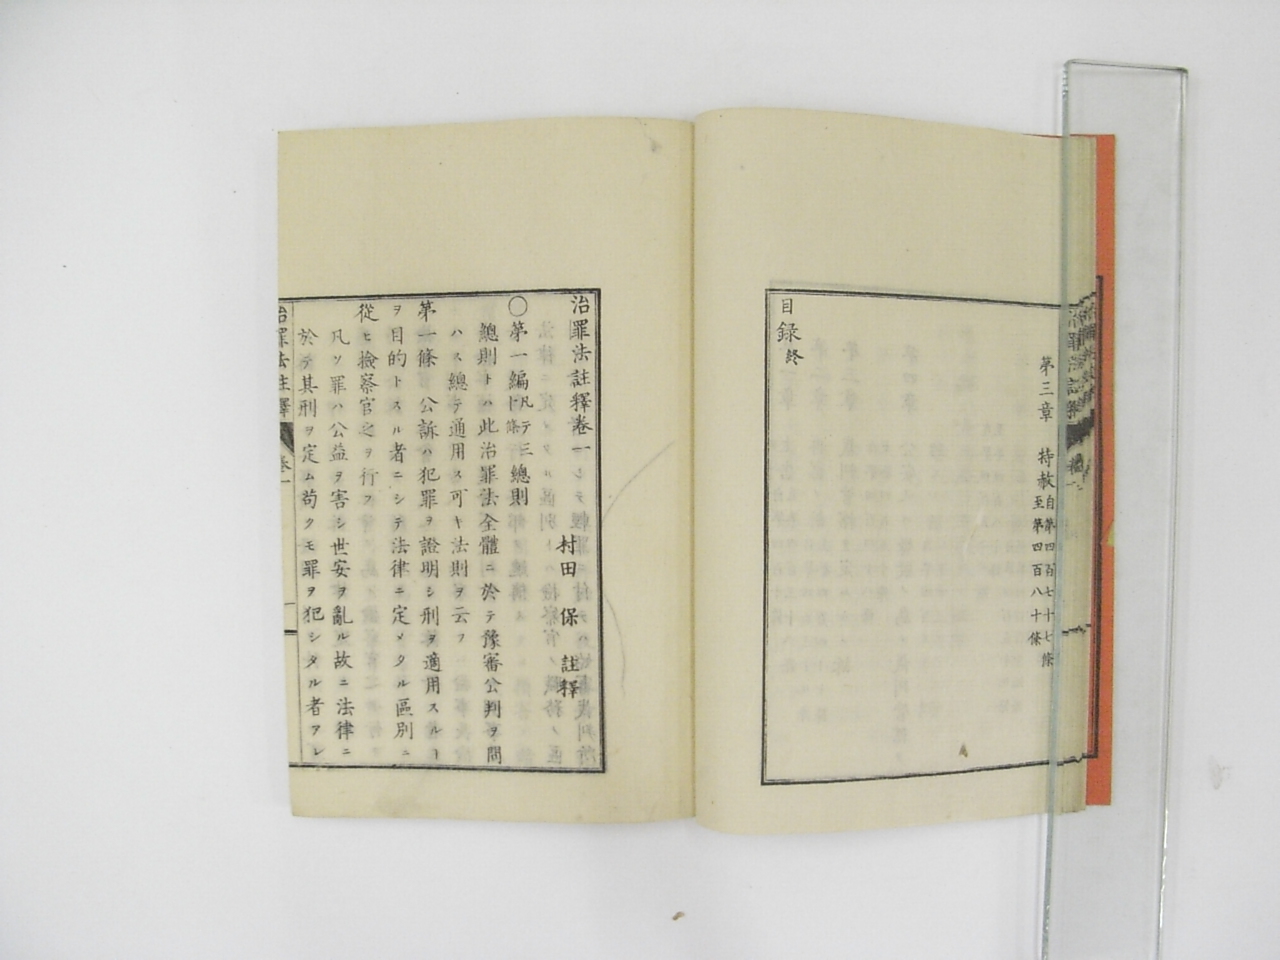 第三章 特赦自第四百七十七條至第四百八十條
目録終
治罪法註釋卷一
村田保 註釋
〇第一編凡テ三十條總則
總則トハ此治罪法全體ニ於テ豫審公判ヲ問
ハス總テ通用ス可キ法則ヲ云フ
第一條 公訴ハ犯罪ヲ證明シ刑ヲ適用スルヿ
ヲ目的トスル者ニシテ法律ニ定メタル區別ニ
從ヒ檢察官之ヲ行フ
凡ソ罪ハ公益ヲ害シ世安ヲ亂ル故ニ法律ニ
於テ其刑ヲ定ム苟クモ罪ヲ犯シタル者アレ
治罪法註釋 卷一